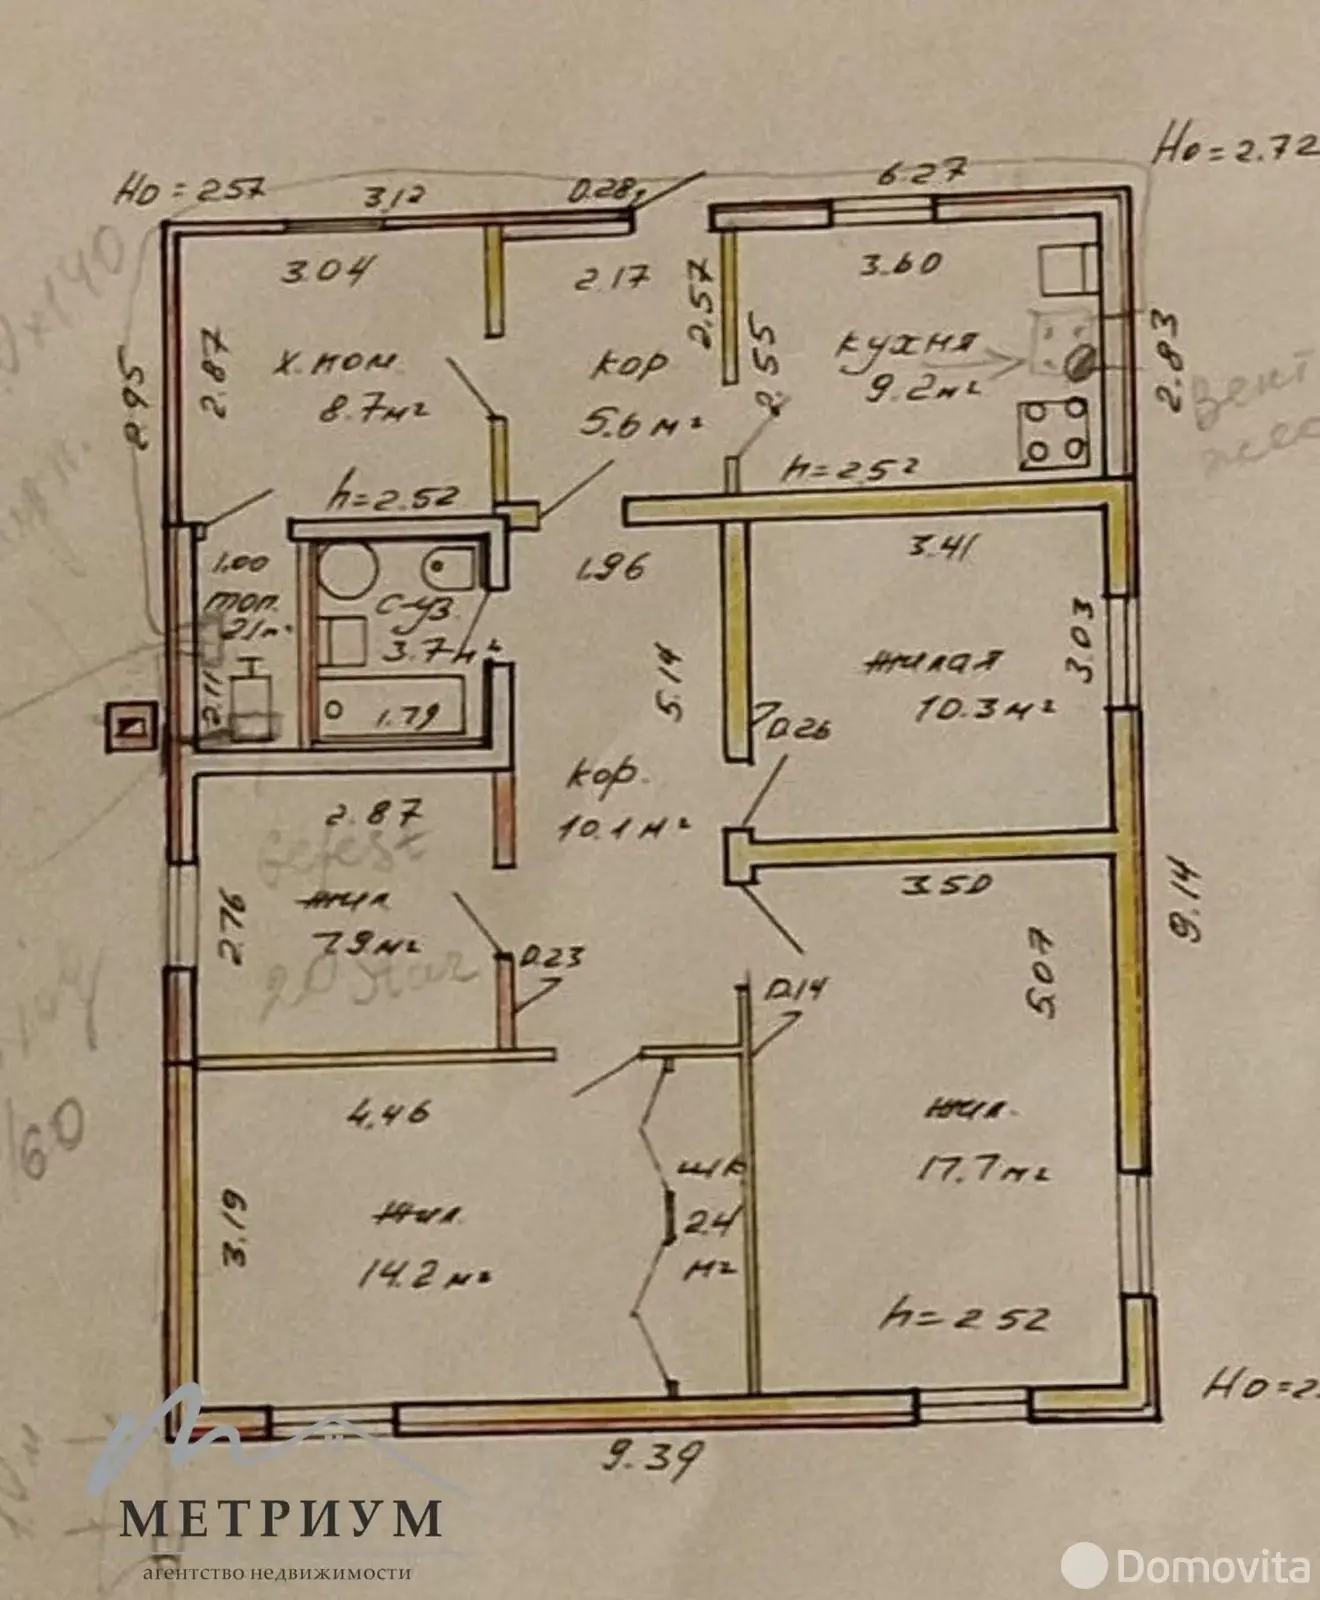 Но = 2.72
Но = 257
3.12
0.28
6.27
3.04
2.17
2.57
3.60
2.87
х.пом.
8.7м²
кор
5.6 м²
2.55
кухня
9.2м²
2.83
2.95
h=2.52
h=2.52
вент
1.00
топ.
2.1м²
2.11
с-уз.
3.7м²
1.79
1.96
5.14
3.41
жилая
10.3м²
3.03
0.26
кор.
10.1м²
2.87
жил
7.9м²
2.76
0.23
3.50
5.07
9.14
0.14
4.46
жил.
14.2м²
3.19
шк
2.4
м²
жил.
17.7м²
h=2.52
/60
Но=2.
9.39
МЕТРИУМ
агентство недвижимости
Domovita